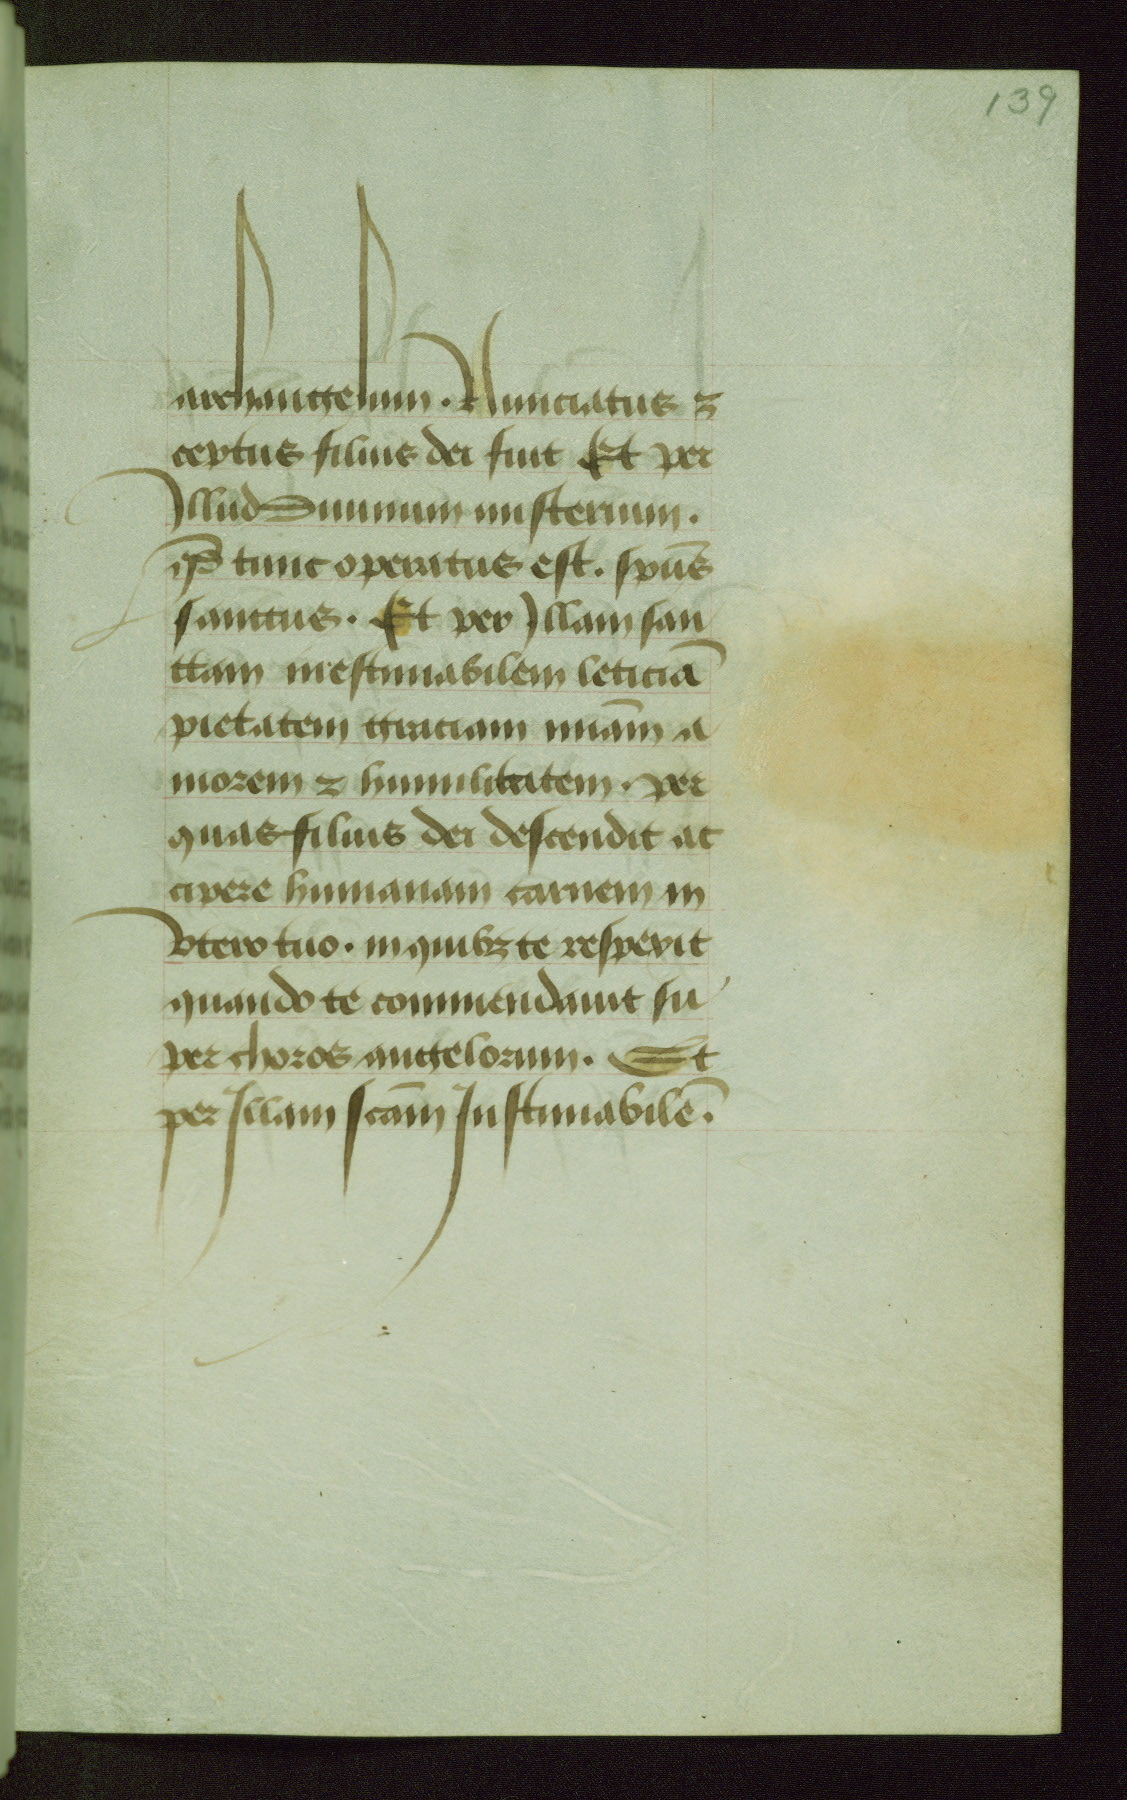 139
archangelum. Nunciatus ⁊
ceptus filius dei fuit Et per
Illud Summum misterium.
qd̄ tunc operatus est. spūs
sanctus. Et per Illam san
ctam inestimabilem leticiā
pietatem graciam miām a
morem ⁊ humilitatem. per
quas filius dei descendit ac
cipere humanam carnem in
vtero tuo. in quibꝫ te respexit
quando te commendauit su
per choros angelorum. Et
per Illam scām Instimabilē.